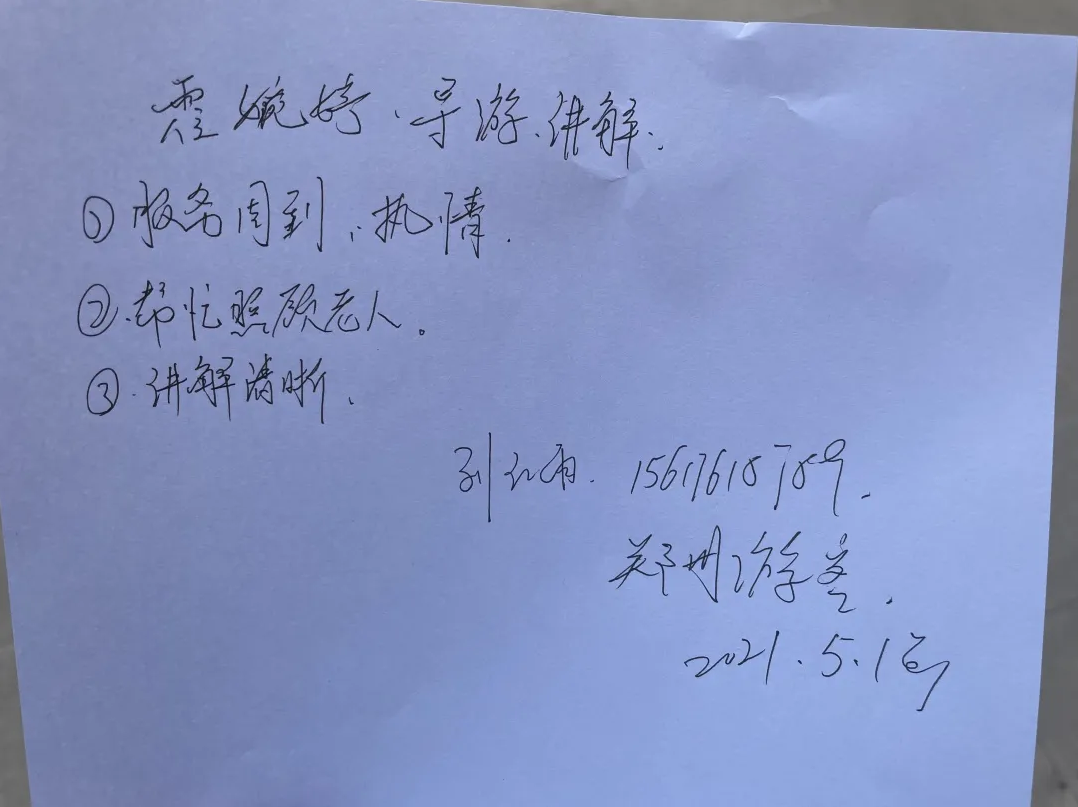 霍婉婷、导游、讲解.
① 服务周到、热情.
② 帮忙照顾老人。
③ 讲解清晰.
刘红雨. 15617618789.
郑州游客.
2021.5.1